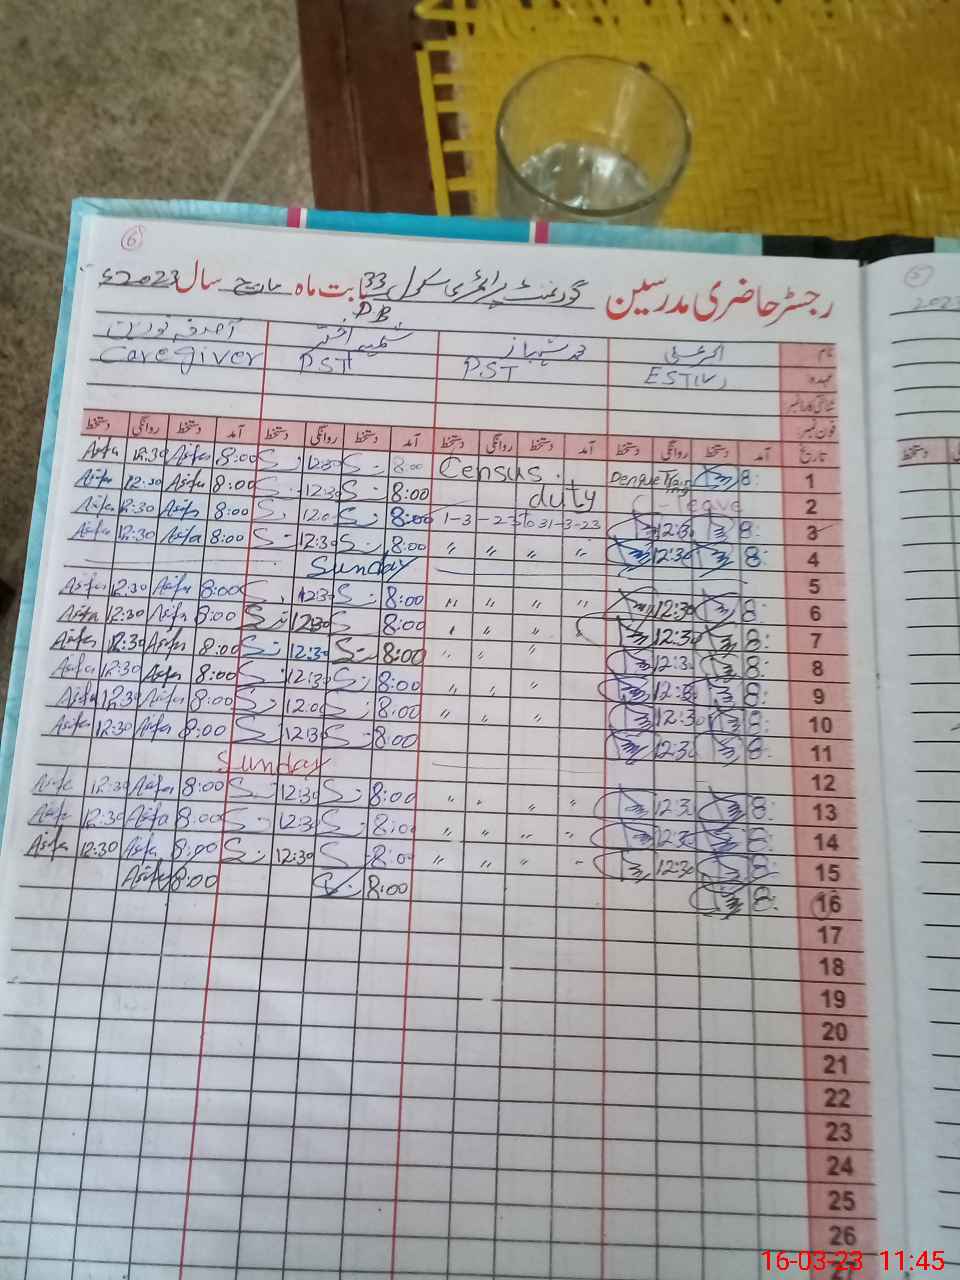 6
رجسٹر حاضری مدرسین گورنمنٹ پرائمری سکول 33 بابت ماہ مارچ سال 2023ء
D.B.
نام محمد شہباز
عہدہ EST P.S.T P.S.T Caregiver
شناختی کارڈ نمبر
فون نمبر
تاریخ آمد دستخط روانگی دستخط آمد دستخط روانگی دستخط آمد دستخط روانگی دستخط آمد دستخط روانگی دستخط
Asifa 12:30 Asifa 8:00 S 12:30 S 8:00 Census Dengue 8: 1
Asifa 12:30 Asifa 8:00 S 12:30 S 8:00 duty leave 2
Asifa 12:30 Asifa 8:00 S 12:0 S 8:00 1-3-23 to 31-3-23 12:30 8: 3
Asifa 12:30 Asifa 8:00 S 12:30 S 8:00 " " " " 12:30 8: 4
Sunday 5
Asifa 12:30 Asifa 8:00 S 12:30 S 8:00 " " " " 12:30 8: 6
Asifa 12:30 Asifa 8:00 S 12:30 S 8:00 " " " " 12:30 8: 7
Asifa 12:30 Asifa 8:00 S 12:30 S 8:00 " " " 12:3 8: 8
Asifa 12:30 Asifa 8:00 S 12:30 S 8:00 " " " 12:30 8: 9
Asifa 12:30 Asifa 8:00 S 12:00 S 8:00 " " " 12:30 8: 10
Asifa 12:30 Asifa 8:00 S 12:3 S 8:00 12:30 8: 11
Sunday 12
Asifa 12:30 Asifa 8:00 S 12:30 S 8:00 " " " " 12:3 8: 13
Asifa 12:30 Asifa 8:00 S 12:3 S 8:0 " " " " 12:3 8: 14
Asifa 12:30 Asifa 8:00 S 12:30 S 8:0 " " " " 12:30 8: 15
Asifa 8:00 S 8:00 8: 16
17
18
19
20
21
22
23
24
25
26
5
2023
دستخط
16-03-23 11:45